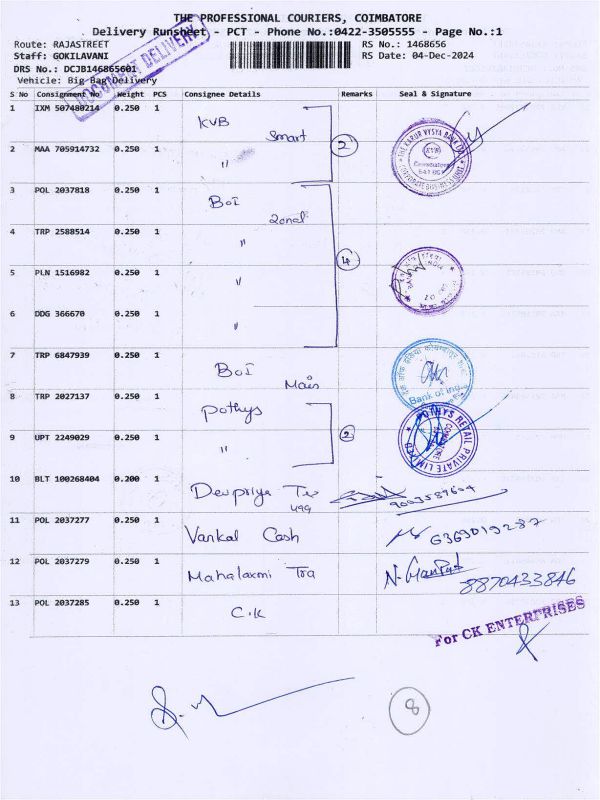 THE PROFESSIONAL COURIERS, COIMBATORE
Delivery Runsheet - PCT - Phone No.:0422-3505555 - Page No.:1
Route: RAJASTREET
RS No.: 1468656
Staff: GOKILAVANI
RS Date: 04-Dec-2024
DRS No.: DCJB146865601
Vehicle: Big Bag Delivery
DOCUMENT DELIVERY
S No Consignment No Weight PCS Consignee Details Remarks Seal & Signature
1 IXM 507480214 0.250 1 KVB Smart
2
THE KARUR VYSYA BANK LTD
KVB
Coimbatore
2 MAA 705914732 0.250 1 "
3 POL 2037818 0.250 1 BOI Zonal
4 TRP 2588514 0.250 1 "
4
5 PLN 1516982 0.250 1 "
6 DDG 366670 0.250 1 "
7 TRP 6847939 0.250 1 BOI Main
Bank of
8 TRP 2027137 0.250 1 Pothys
POTHYS RETAIL PRIVATE LIMITED
2
9 UPT 2249029 0.250 1 "
10 BLT 100268404 0.200 1 Devpriya
11 POL 2037277 0.250 1 Vankal Cash
12 POL 2037279 0.250 1 Mahalaxmi Tra
8870433846
13 POL 2037285 0.250 1 C.K
For CK ENTERPRISES
8